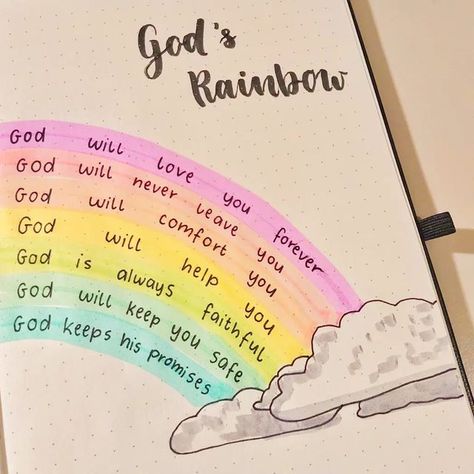 God's
Rainbow
God will love you forever
God will never leave you
God will comfort you
God will help you
God is always faithful
God will keep you safe
God keeps his promises